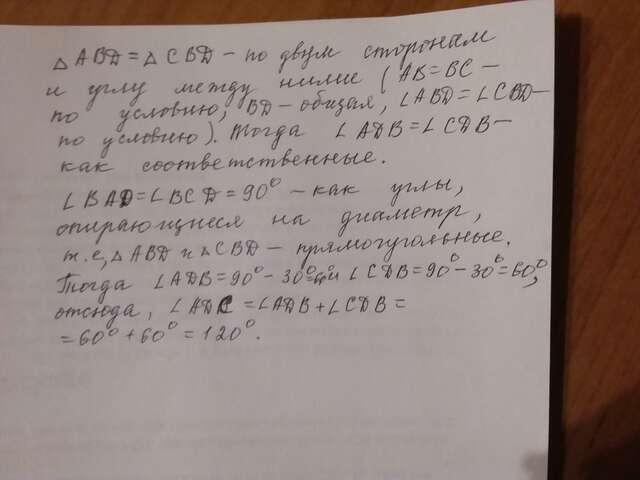 △ ABD = △ CBD – по двум сторонам
и углу между ними (AB = BC –
по условию, BD – общая, ∠ABD = ∠CBD –
по условию). Тогда ∠ADB = ∠CDB –
как соответственные.
∠BAD = ∠BCD = 90° – как углы,
опирающиеся на диаметр,
т.е, △ABD и △CBD – прямоугольные.
Тогда ∠ADB = 90° – 30° = 60° и ∠CDB = 90° – 30° = 60°,
отсюда, ∠ADC = ∠ADB + ∠CDB =
= 60° + 60° = 120°.